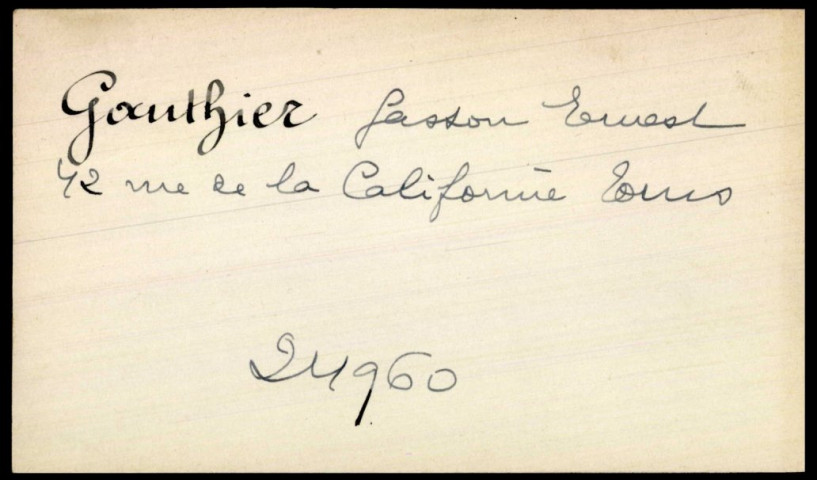 Gauthier Gaston Ernest
42 rue de la Californie Tours
24960